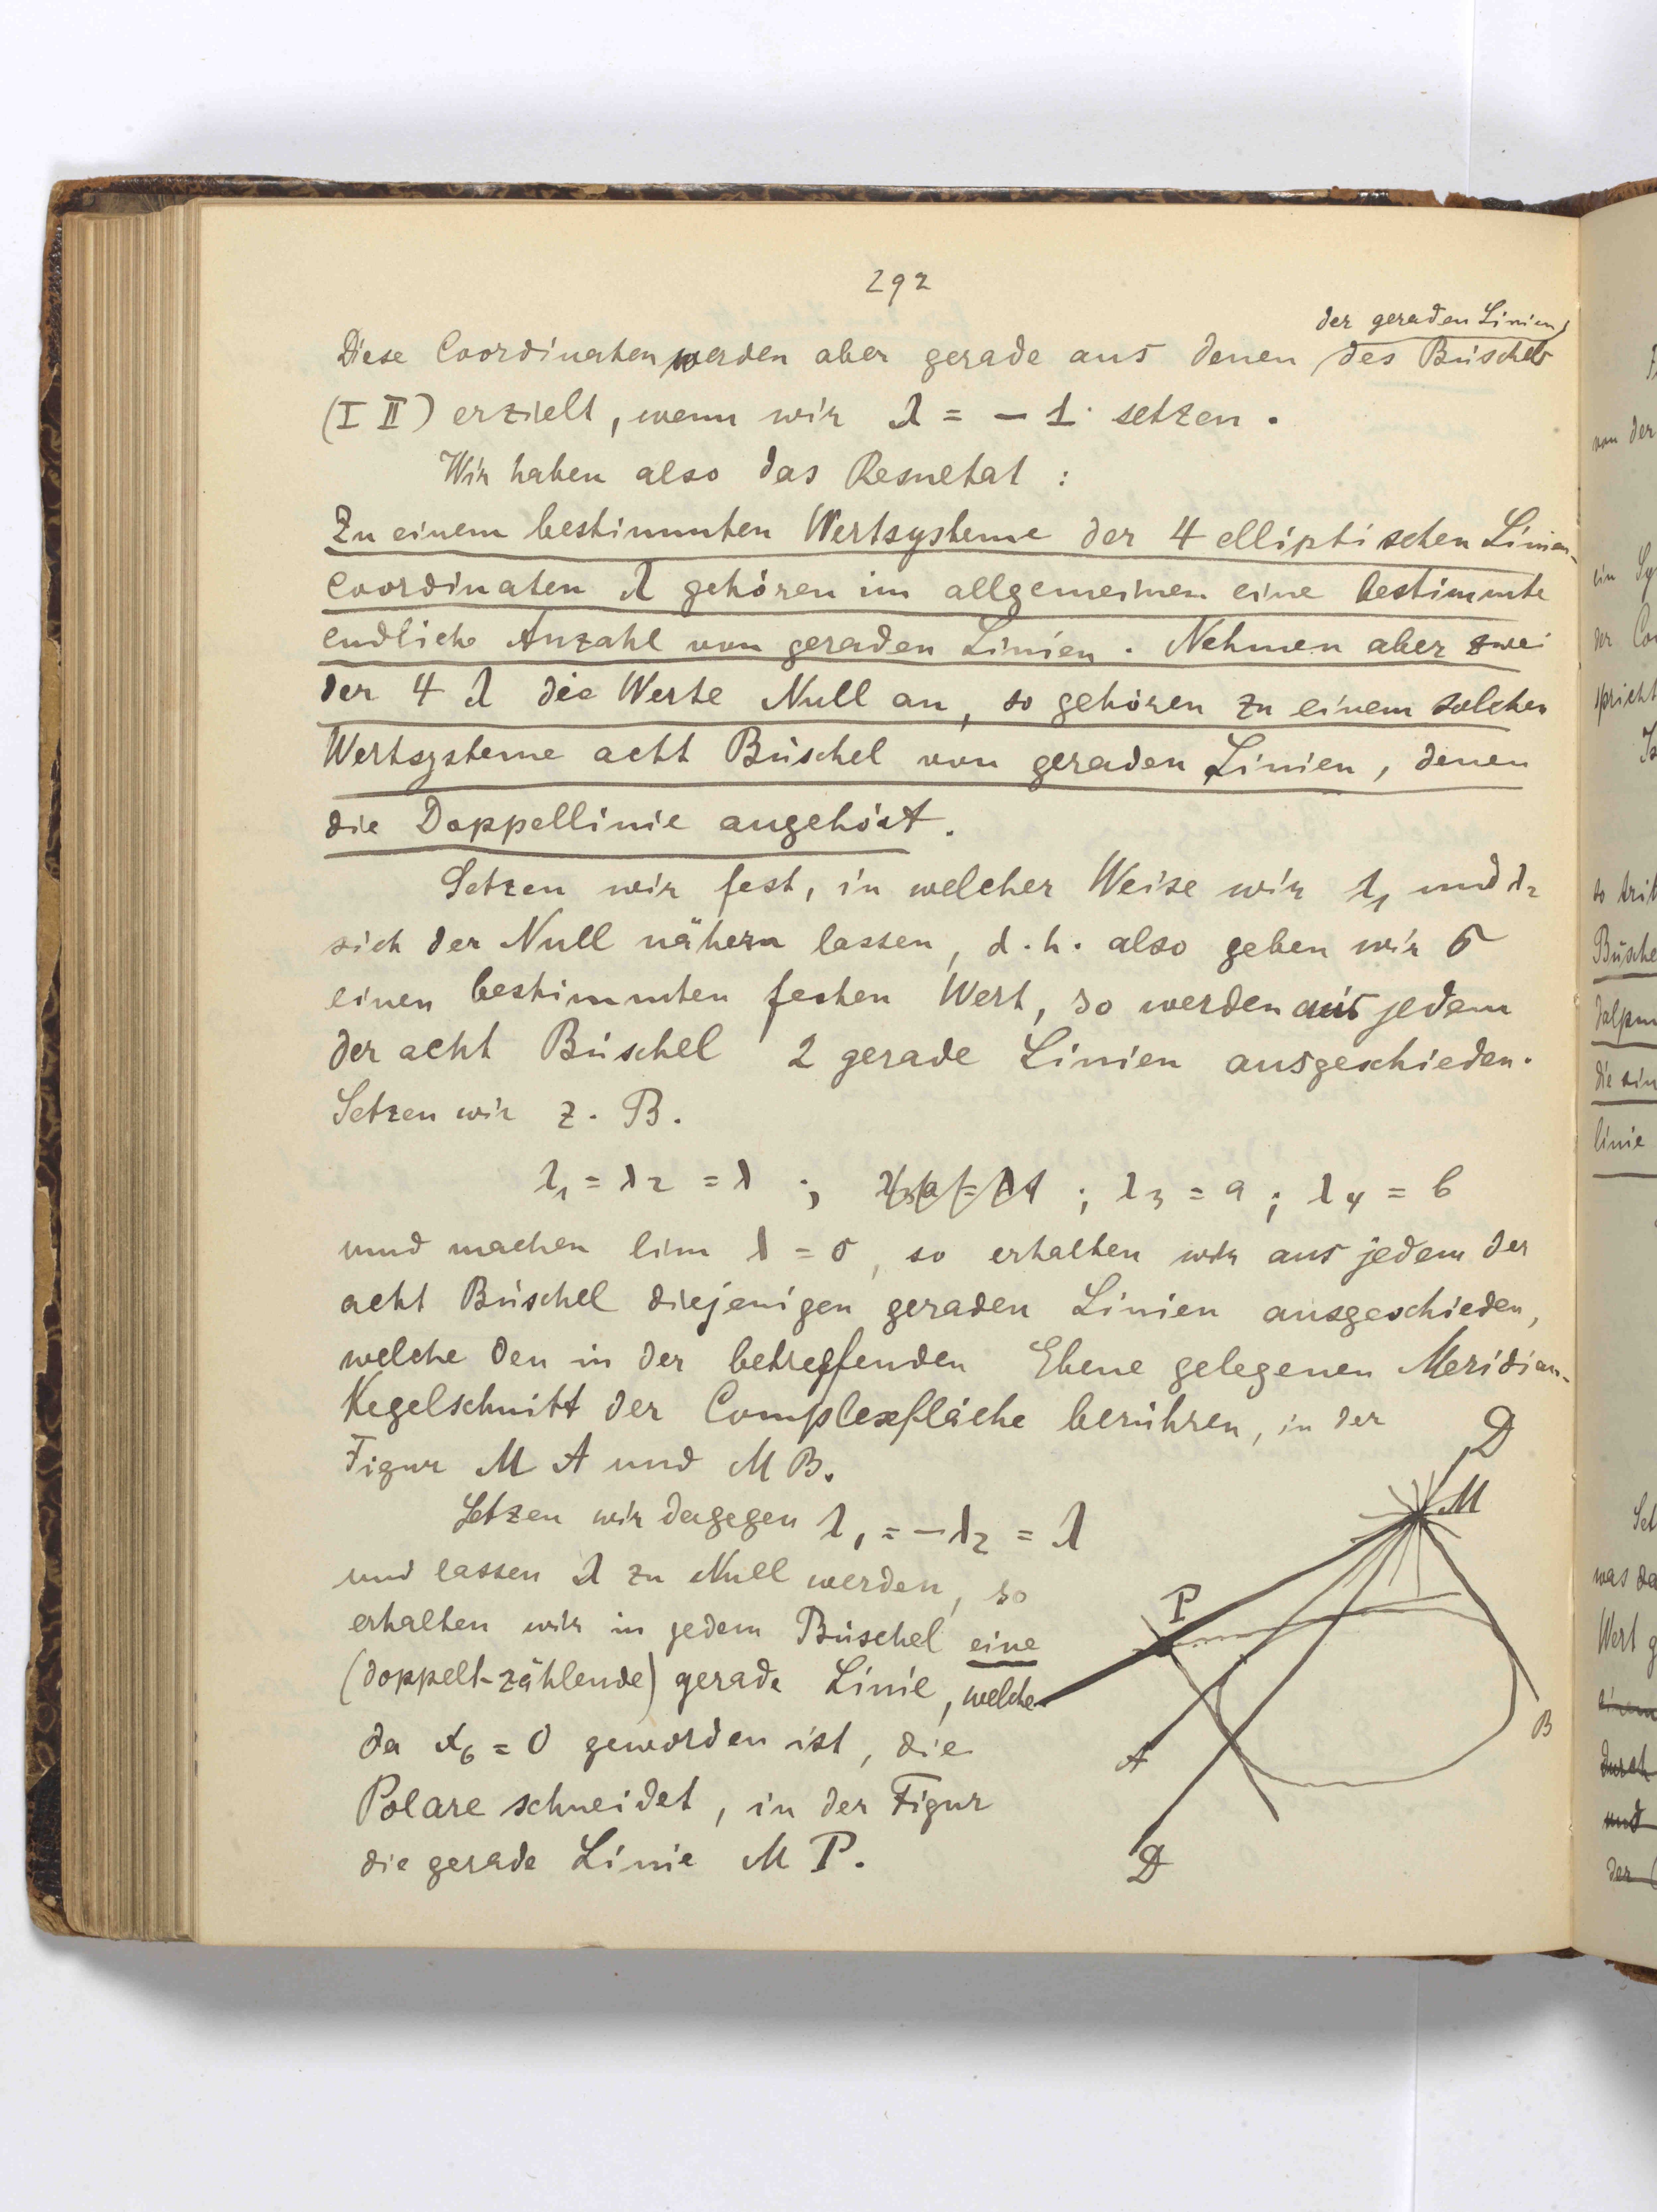 292
der geraden Linien
Diese Coordinaten werden aber gerade aus denen des Büschels
(I II) erzielt, wenn wir λ = - 1 setzen.
Wir haben also das Resultat :
Zu einem bestimmten Wertsysteme der 4 elliptischen Linien-
coordinaten λ gehören im allgemeinen eine bestimmte
endliche Anzahl von geraden Linien. Nehmen aber zwei
der 4 λ die Werte Null an, so gehören zu einem solchen
Wertsysteme acht Büschel von geraden Linien, denen
die Doppellinie angehört.
Setzen wir fest, in welcher Weise wir λ₁ und λ₂
sich der Null nähern lassen, d.h. also geben wir σ
einen bestimmten festen Wert, so werden aus jedem
der acht Büschel 2 gerade Linien ausgeschieden.
Setzen wir z. B.
λ₁ = λ₂ = λ ; ; λ₃ = a ; λ₄ = b
und machen lim λ = 0, so erhalten wir aus jedem der
acht Büschel diejenigen geraden Linien ausgeschieden,
welche den in der betreffenden Ebene gelegenen Meridian-
Kegelschnitt der Complexfläche berühren, in der
Figur M A und M B.
Setzen wir dagegen λ₁ = - λ₂ = λ
und lassen λ zu Null werden, so
erhalten wir in jedem Büschel eine
(doppelt-zählende) gerade Linie, welche
da x₆ = 0 geworden ist, die
Polare schneidet, in der Figur
die gerade Linie M P.
D
M
P
B
A
D
von der
ein
der
spricht
so
Büsche
die
linie
was da
Wert
durch
und
der